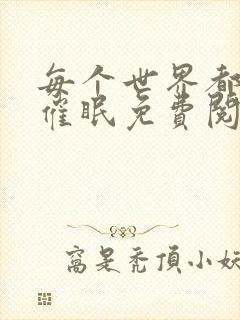 每个世界都
催眠免费阅
窝是秃頂小妖